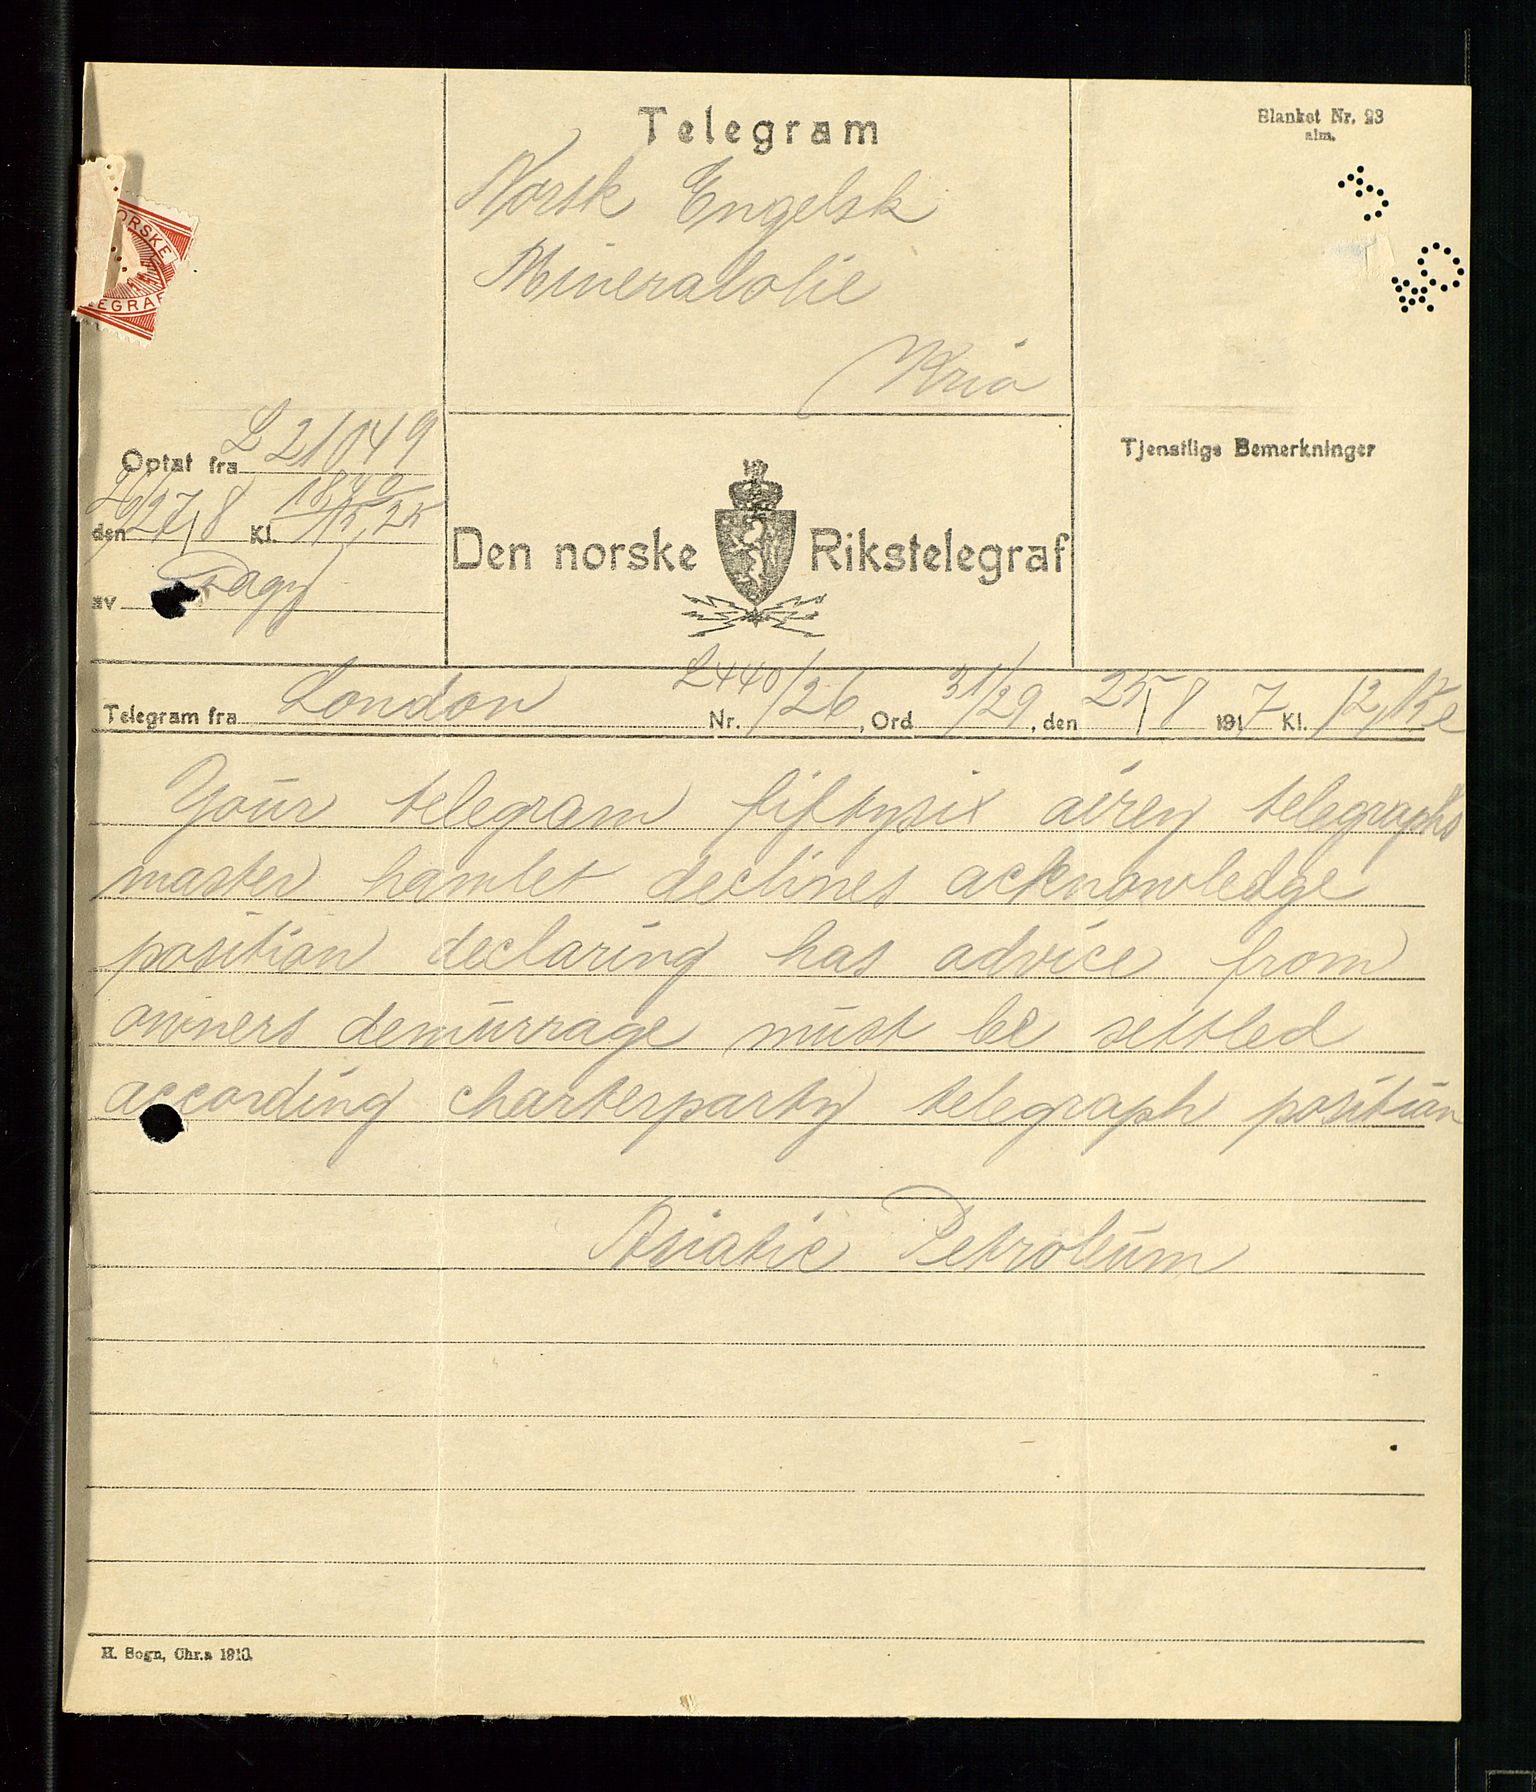 Telegram
Blanket Nr. 23
alm.
Norsk Engelsk
Mineralolie
Kria
ORSKE
EGRAF
Optat fra L 21049
den 27/8 Kl. 15,25
av
Tjenstlige Bemerkninger
Den norske Rikstelegraf
Telegram fra London Nr. L440/26, Ord 31/29, den 25/8 1917 Kl. 12,15 e
Your telegram fiftysix airey telegraphs
master hamlet declines acknowledge
position declaring has advice from
owners demurrage must be settled
according charterparty telegraph position
Asiatic Petroleum
H. Sogn, Chr.a 1913.